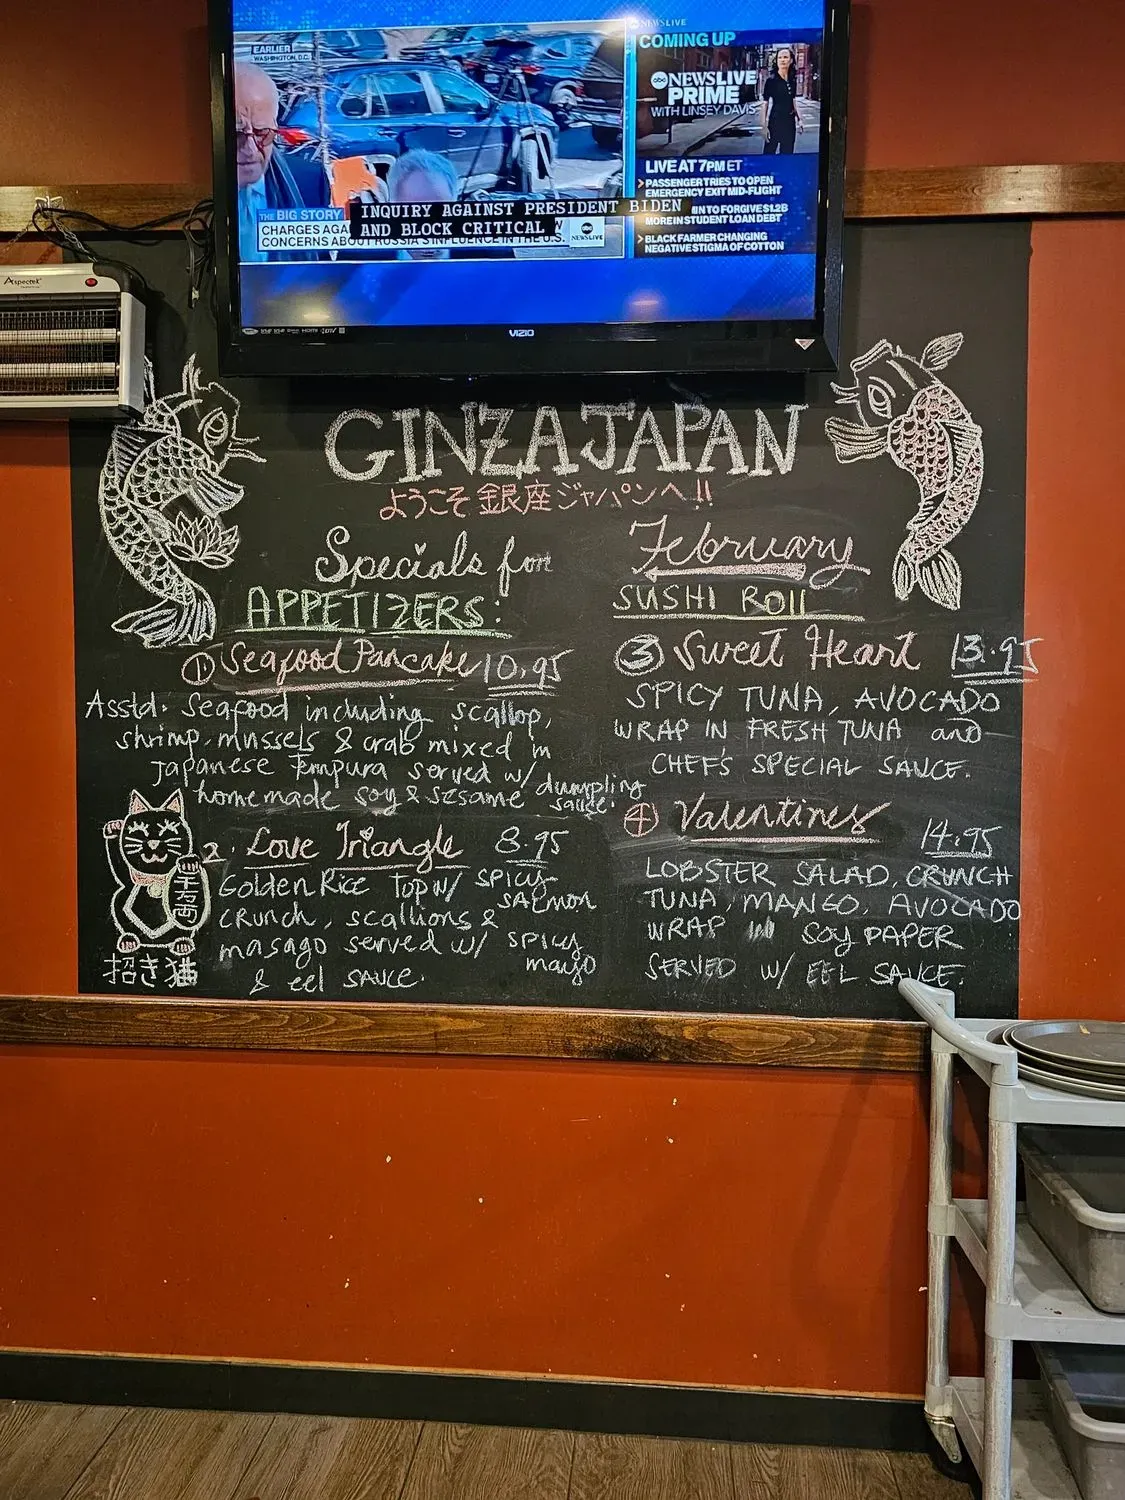 NEWSLIVE
EARLIER
WASHINGTON, D.C.
COMING UP
abc NEWSLIVE
PRIME
WITH LINSEY DAVIS
LIVE AT 7PM ET
PASSENGER TRIES TO OPEN
EMERGENCY EXIT MID-FLIGHT
IN TO FORGIVE $1.2B
MORE IN STUDENT LOAN DEBT
BLACK FARMER CHANGING
NEGATIVE STIGMA OF COTTON
INQUIRY AGAINST PRESIDENT BIDEN
AND BLOCK CRITICAL
THE BIG STORY
CHARGES AGA
CONCERNS ABOUT RUSSIA'S INFLUENCE IN THE U.S.
abc NEWSLIVE
VIZIO
Aspectek
GINZA JAPAN
ようこそ 銀座ジャパンへ!!
Specials for
APPETIZERS:
① Seafood Pancake 10.95
Asstd. Seafood including scallop,
shrimp, mussels & crab mixed in
Japanese Tempura served w/ dumpling
homemade soy & sesame sauce.
2. Love Triangle 8.95
Golden Rice Top w/ spicy
salmon
crunch, scallions &
masago served w/ spicy
mayo
& eel sauce.
千万両
招き猫
February
SUSHI ROll
③ Sweet Heart 13.95
SPICY TUNA, AVOCADO
WRAP IN FRESH TUNA and
CHEF'S SPECIAL SAUCE.
④ Valentines 14.95
LOBSTER SALAD, CRUNCH
TUNA, MANGO, AVOCADO
WRAP IN Soy PAPER
SERVED W/ EEL SAUCE.